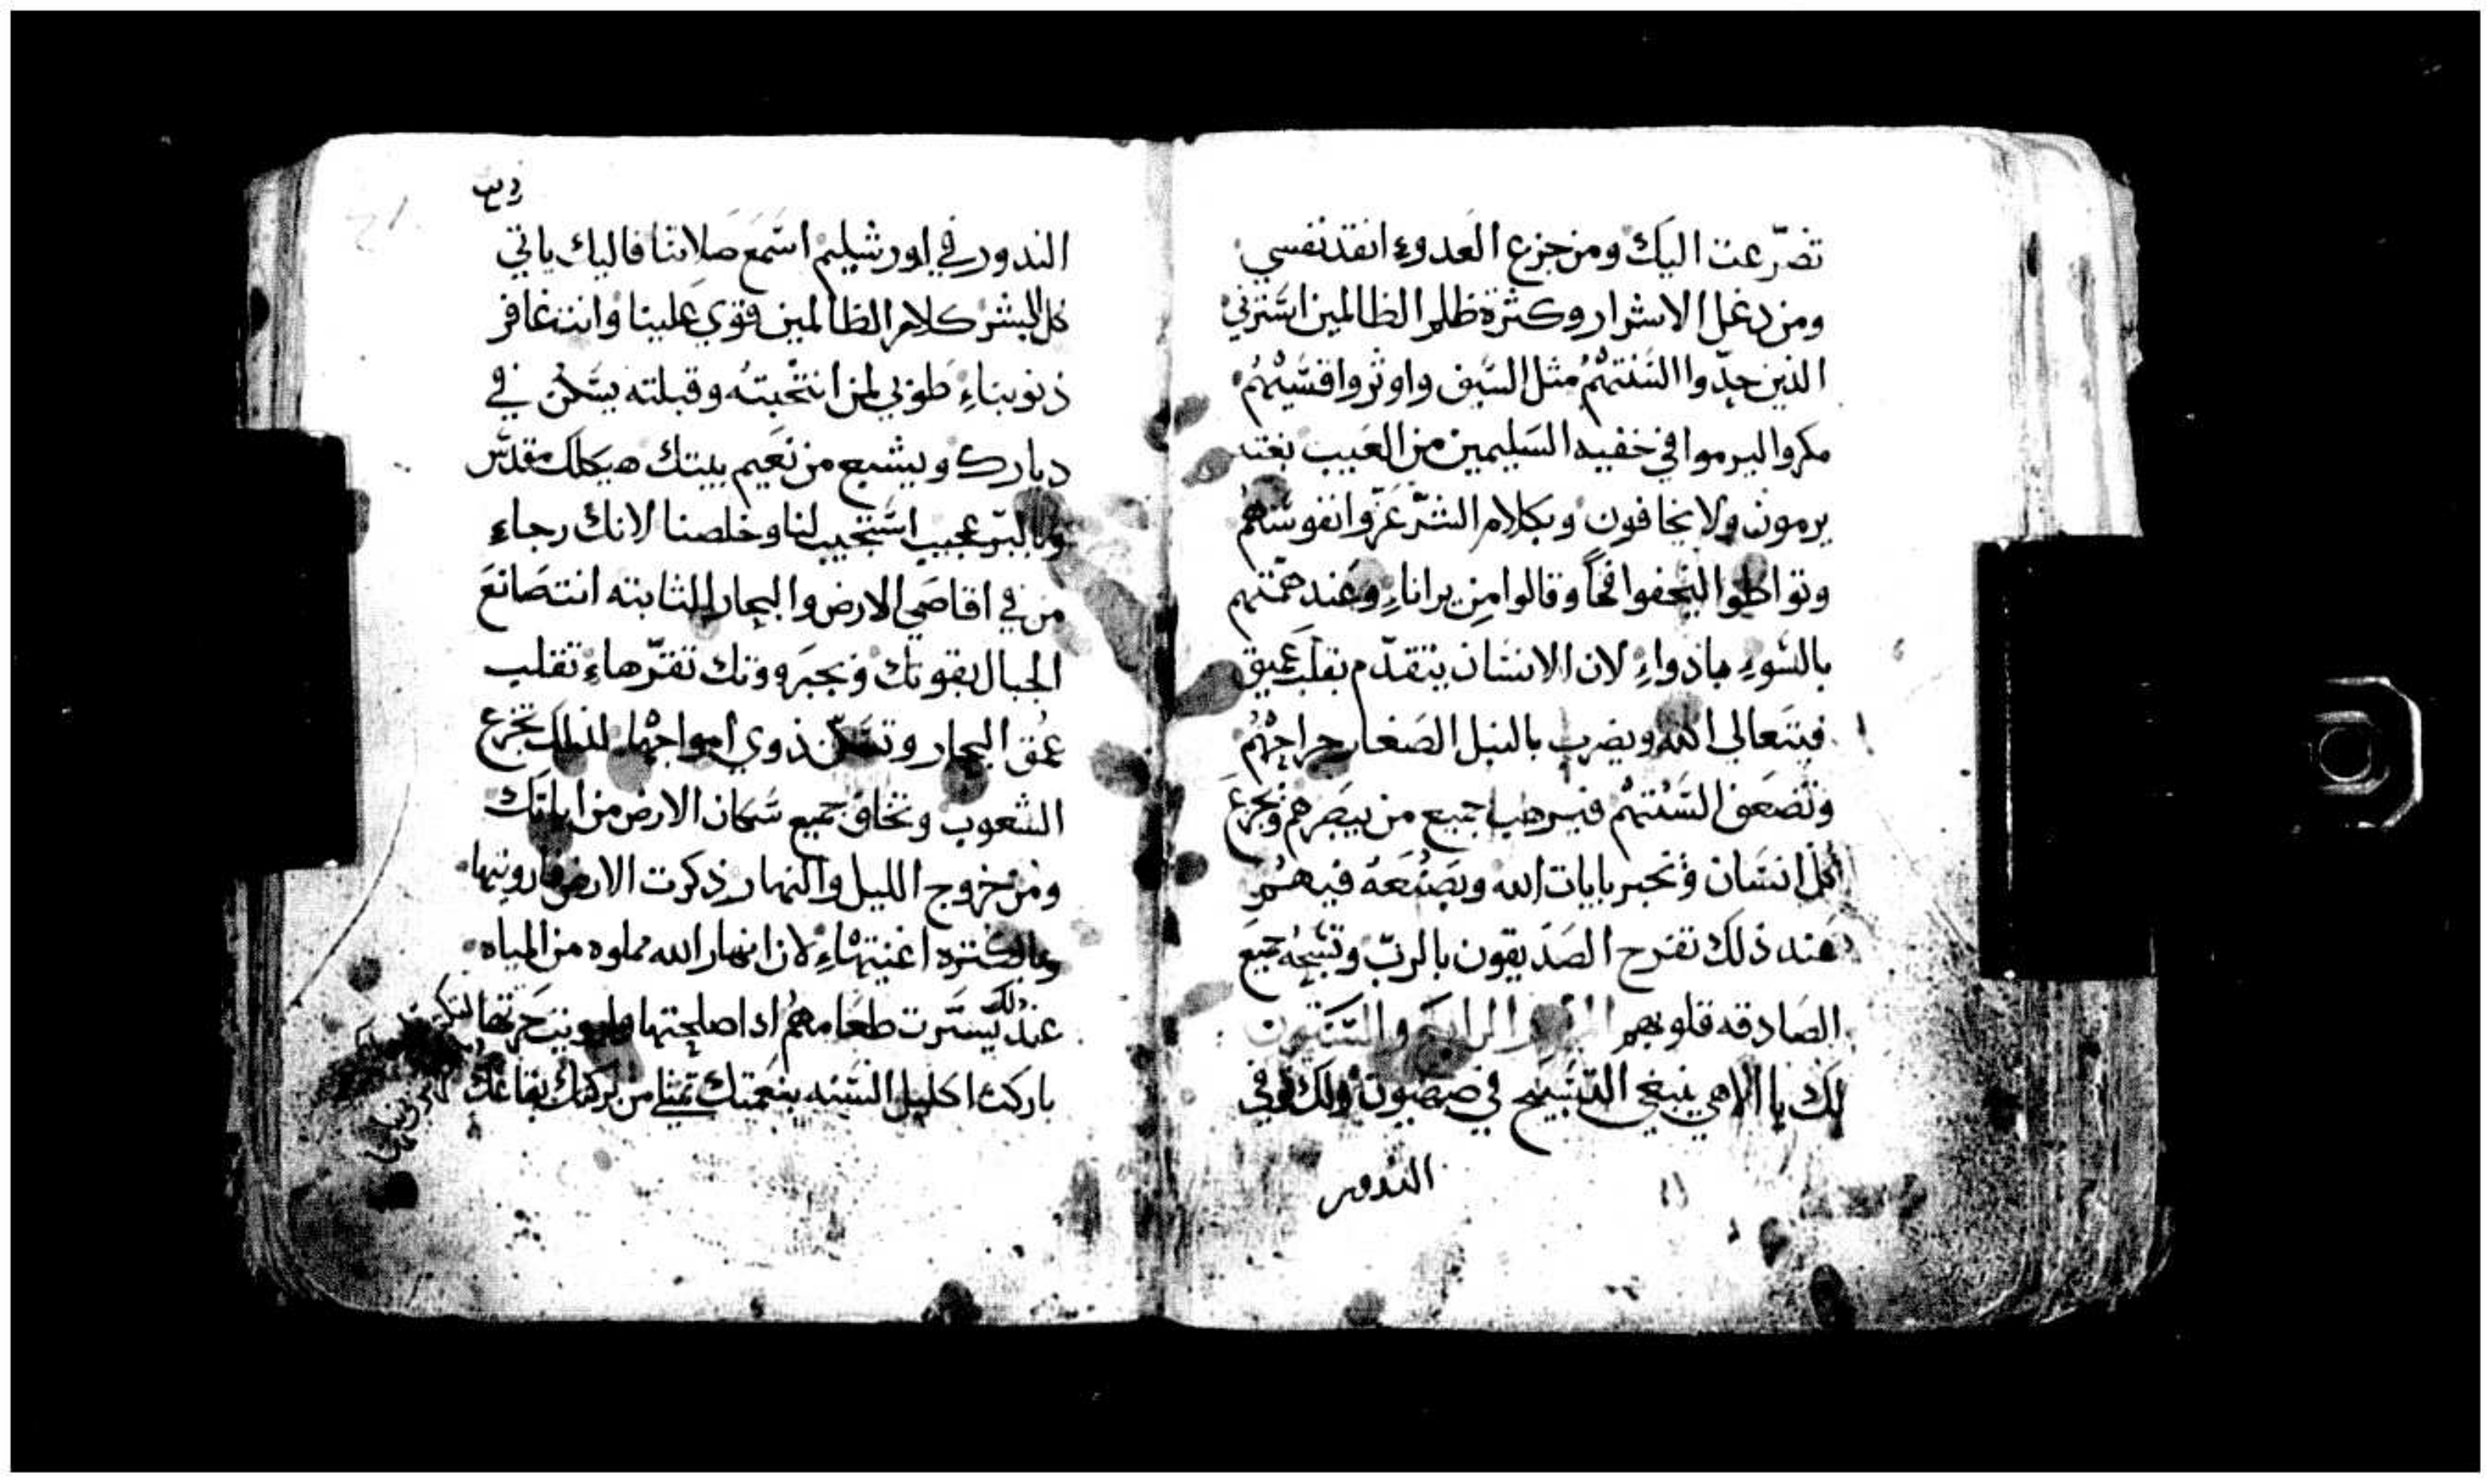 تضرّعت اليك ومن جزع العدوء انقذ نفسي
ومن دغل الاشرار وكثرة ظلم الظالمين استرني
الذين حدّوا السنتهم مثل السيف واوتروا قسيهم
مكروا ليرموا في خفيه السليمين من العيب بغته
يرمون ولا يخافون وبكلام الشرّ عزّوا نفوسهم
وتواطوا ليخفوا فخاً وقالوا من يراناء وعند همتهم
بالسوء بادواء لان الانسان يتقدّم بقلب عميق
فيتعالى الله ويضرب بالنبل الصغار جراحهم
وتضعف السنتهم فيرهب جميع من يبصرهم ويجزع
كل انسان وتخبر بايات الله وبصنعه فيهم
عند ذلك تفرح الصديقون بالربّ وتسبحه جميع
الصادقه قلوبهم الرابع والستون
لك يا الاهي ينبغي التسبيح في صهيون ولك توفي
الندور
الندور في اورشليم اسمع صلاتنا فاليك ياتي
كل البشر كلام الظالمين قوي علينا وانت غافر
ذنوبناء طوبى لمن انتخبته وقبلته يسكن في
ديارك ويشبع من نعيم بيتك هيكلك مقدّس
وبالبرّ عجيب استجيب لنا وخلصنا لانك رجاء
من في اقاصي الارض والبحار الثابته انت صانع
الجبال بقوتك وبجبروتك تقرّهاء تقلب
عمق البحار وتسكّن ذوي امواجها لذلك تجزع
الشعوب وتخاف جميع سكان الارض من اياتك
ومن خروج الليل والنهار ذكرت الارض فارويتها
وبالكثره اغنيتهاء لان انهار الله مملوه من المياه
عند ذلك يسّرت طعامهم اذا اصلحتها
باركت اكليل السنه بنعمتك تمتلي من بركتك بقاعك